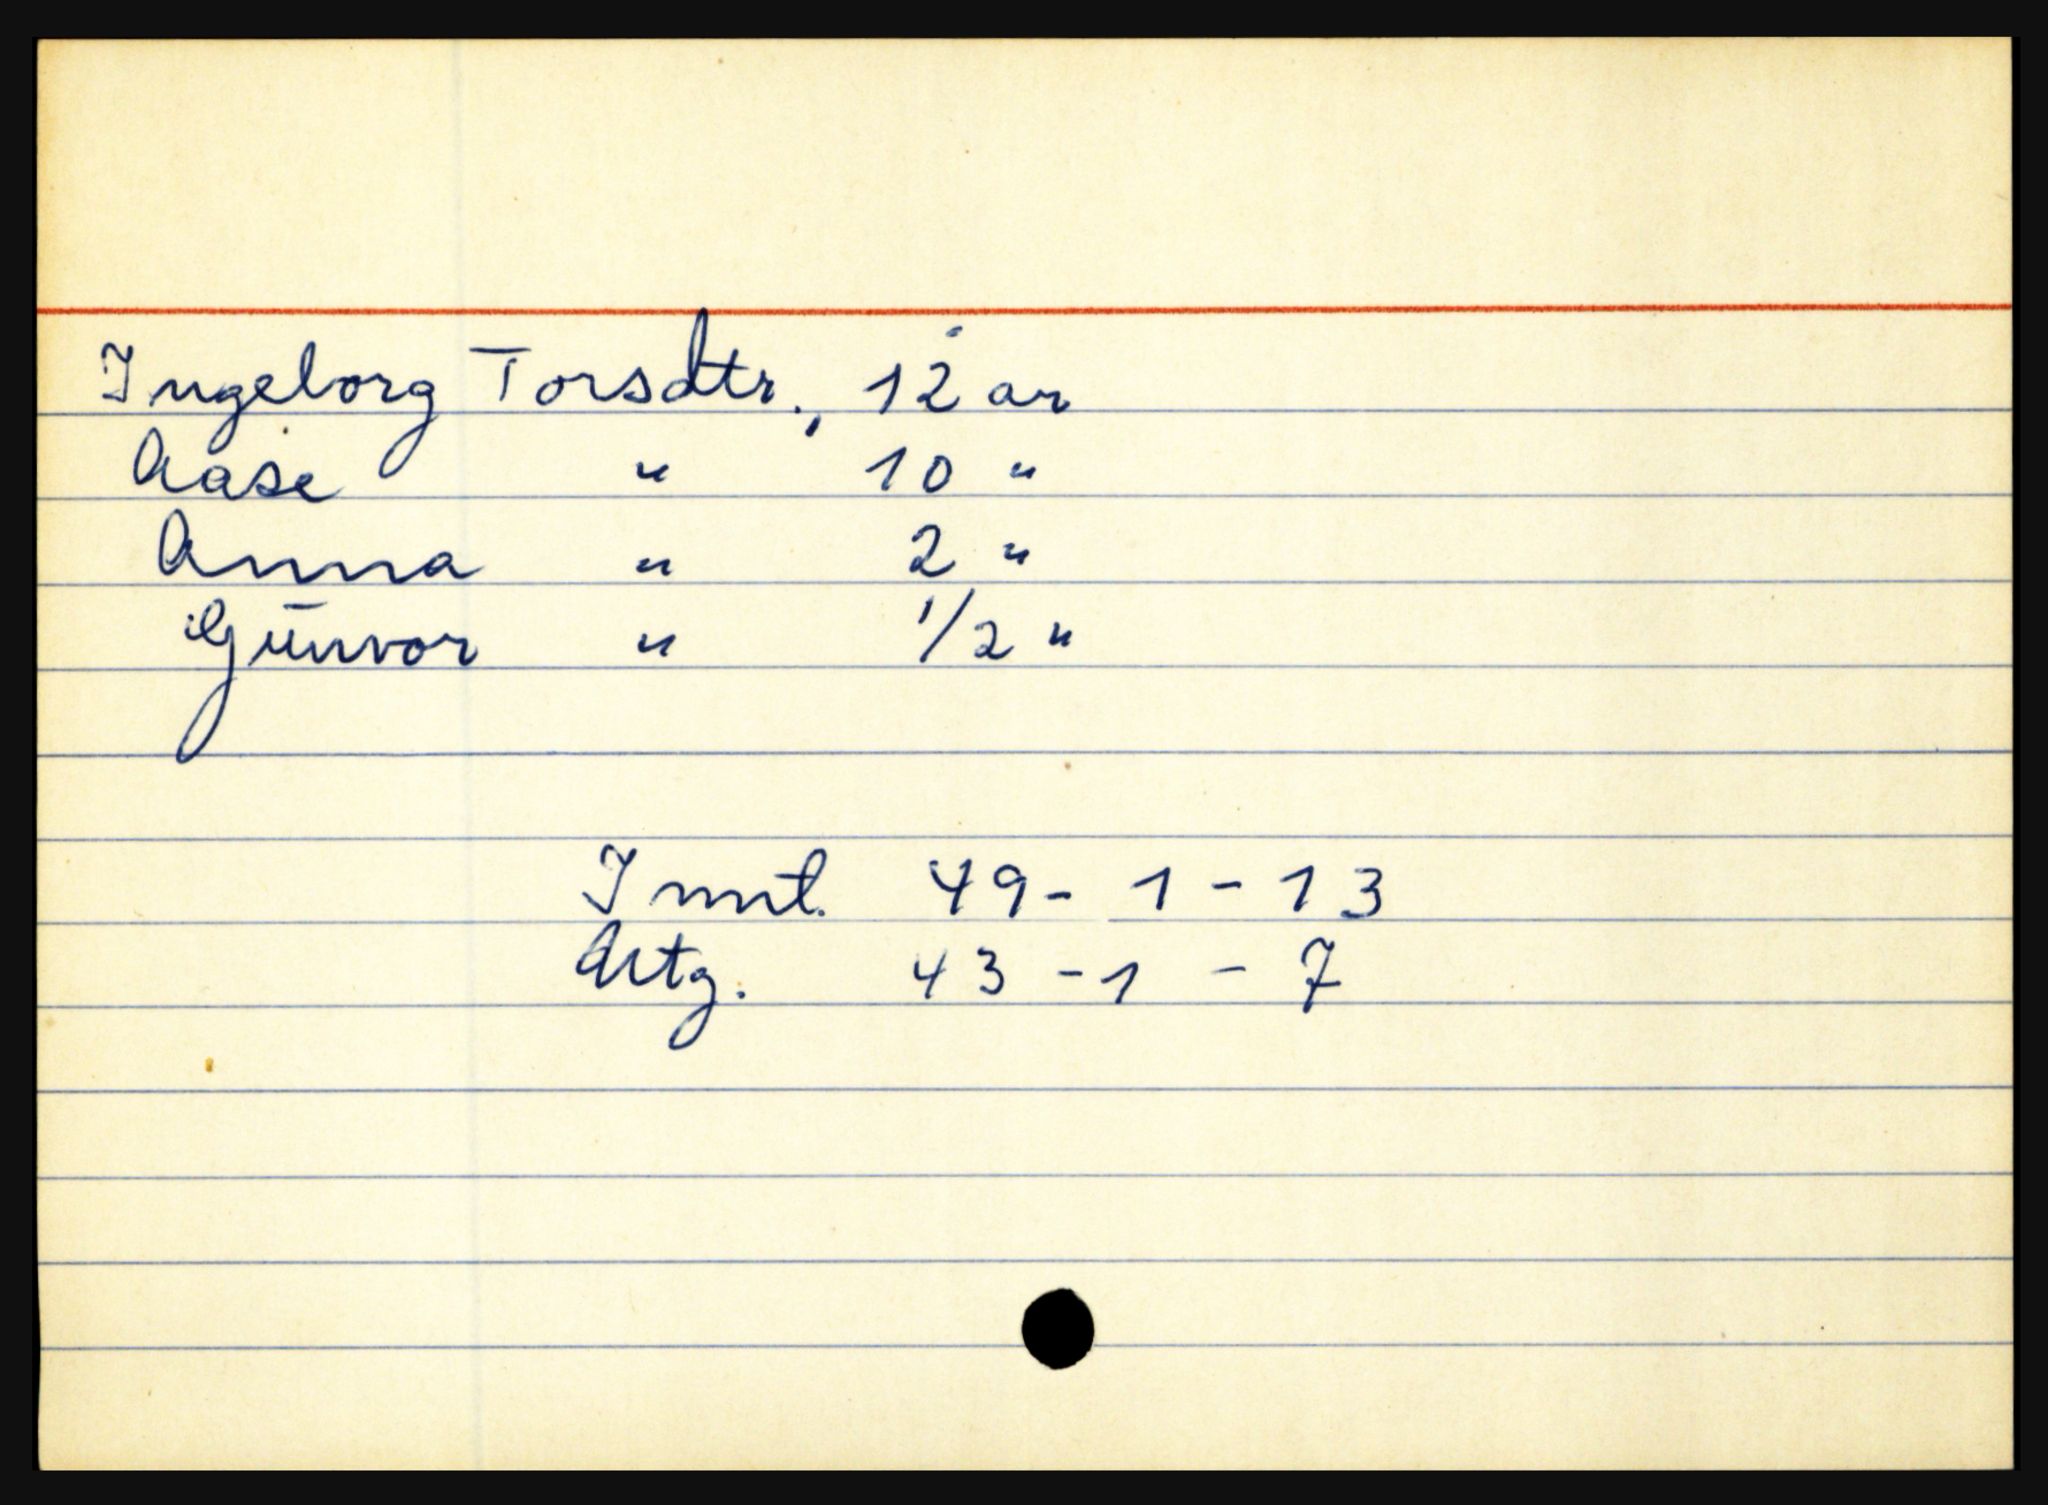 Ingeborg Torsdtr., 12 år
Aase " 10 "
Anna " 2 "
Gunvor " 1/2 "
Innt. 49 - 1 - 13
Utg. 43 - 1 - 7